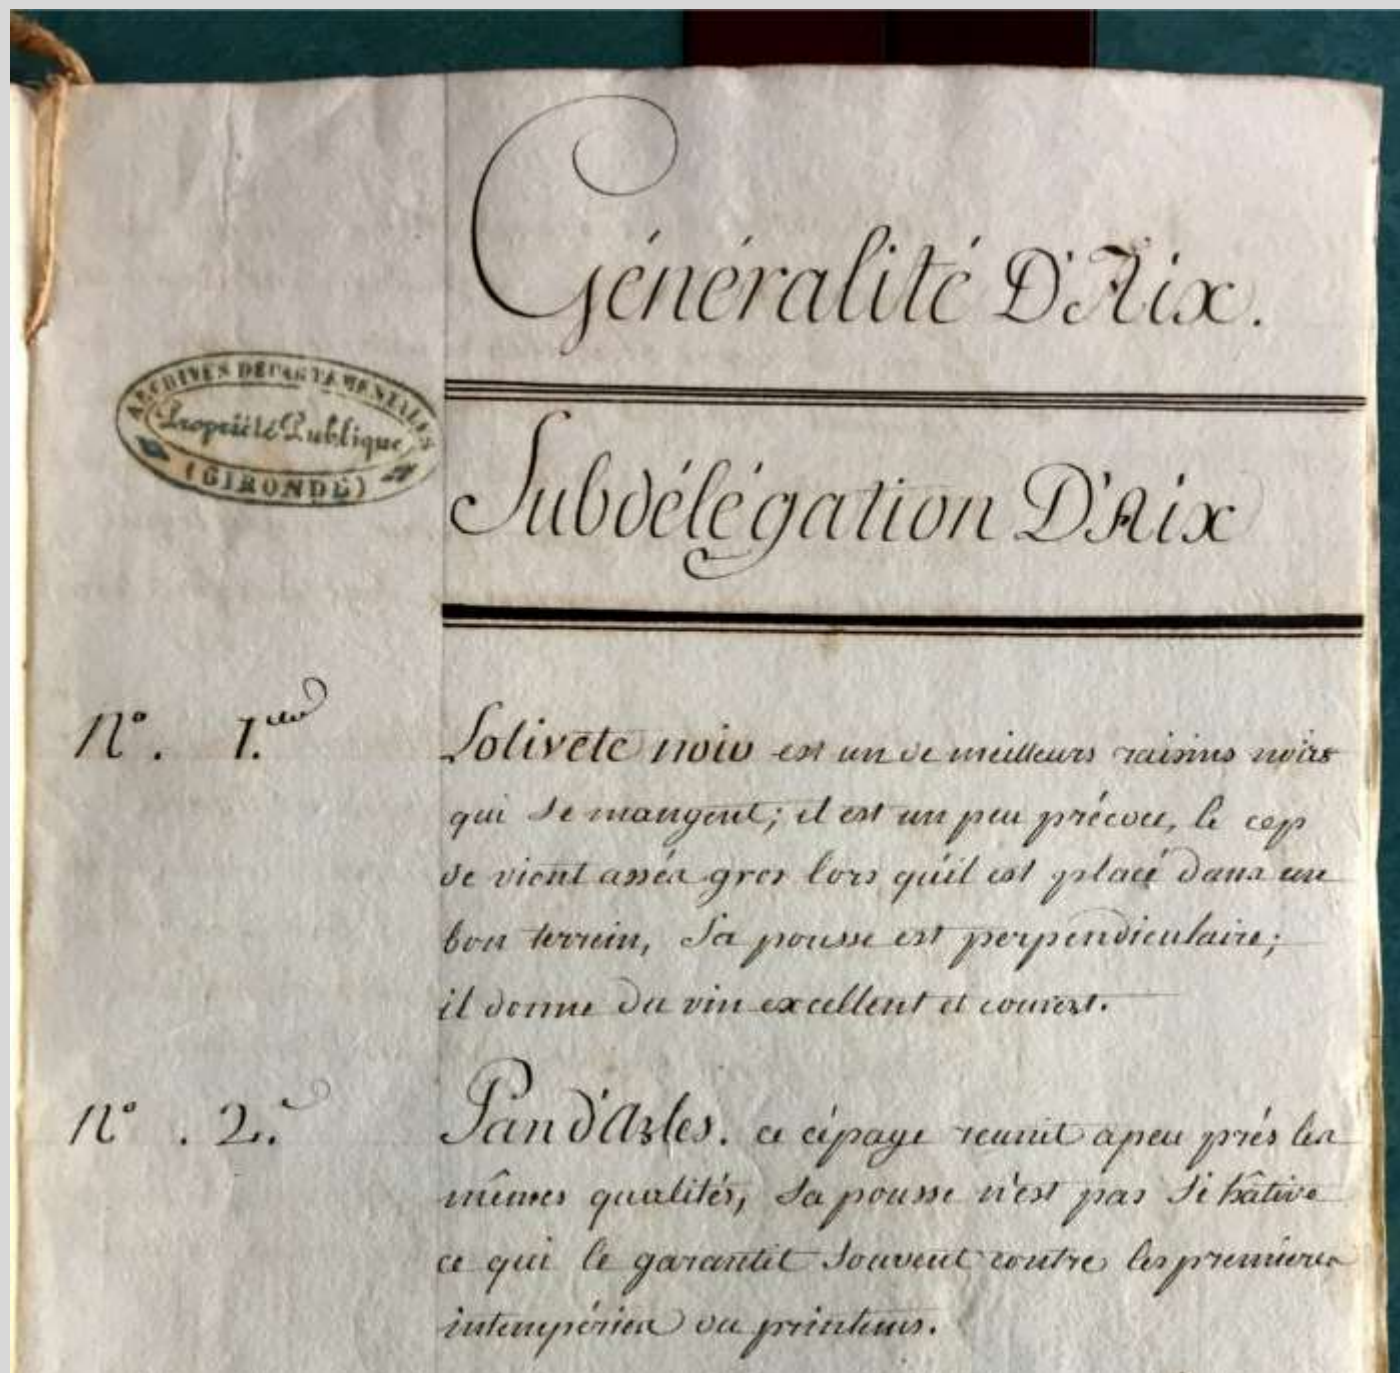 Généralité D'Aix.
ARCHIVES DÉPARTEMENTALES
Propriété Publique
(GIRONDE)
Subdélégation D'Aix
N.º 1.er
Lolivete noir est un de meilleurs raisins noirs
qui se mangent; il est un peu précoce, le cep
de vient assés gros lors qu'il est placé dans un
bon terrein, sa pousse est perpendiculaire;
il donne du vin excellent et couvert.
N.º 2.e
Pan d'Arles. ce cépage reunit apeu prés les
mêmes qualités, sa pousse n'est pas si hâtive
ce qui le garantit souvent contre les premieres
intempéries du printems.